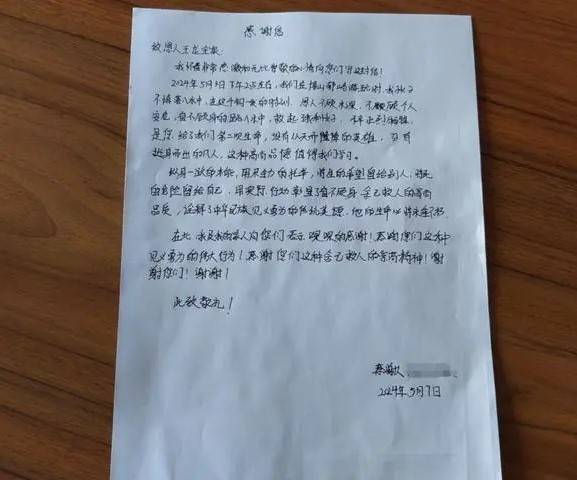 感谢信
致恩人王龙全家:
我怀着非常感激和无比崇敬的心情向您们写这封信!
2024年5月4日下午2点左右,我们在 游玩时,我孩子
不慎落入水中,在这千钧一发的时刻,恩人不顾水深,不顾个人
安危,奋不顾身的跳入水中,救起孩子,
是您,给了我们第二次生命,没有从天而降的英雄,只有
挺身而出的凡人,这种高尚品德值得我们学习。
纵身一跃的 ,用尽全力的托举,将生的希望留给别人,将死
的危险留给自己,用实际行动彰显了奋不顾身、舍己救人的高尚
品质,诠释了中华民族见义勇为的传统美德,
在此,我及我的家人向您们表示深深的感谢!感谢您们这种
见义勇为的伟大行为!感谢您们这种舍己救人的崇高精神!谢
谢您们!谢谢!
此致敬礼!
感谢人
2024年5月7日